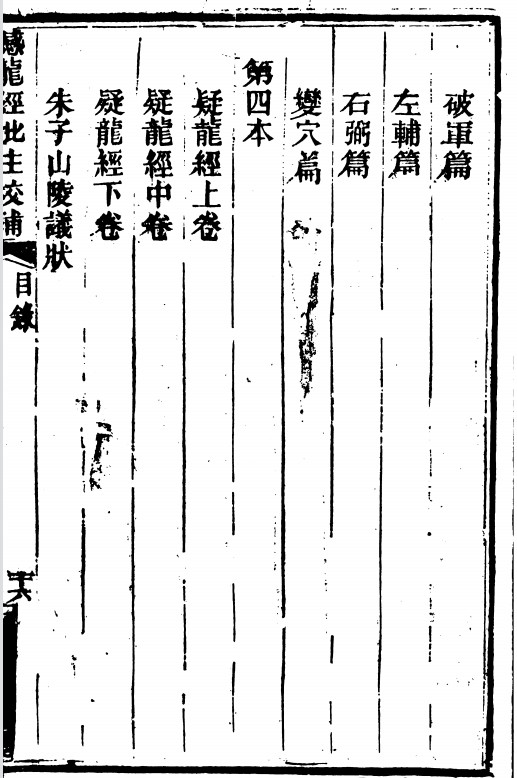 破軍篇
左輔篇
右弼篇
變穴篇
第四本
疑龍經上卷
疑龍經中卷
疑龍經下卷
朱子山陵議狀
撼龍經批注校補
目錄
十六